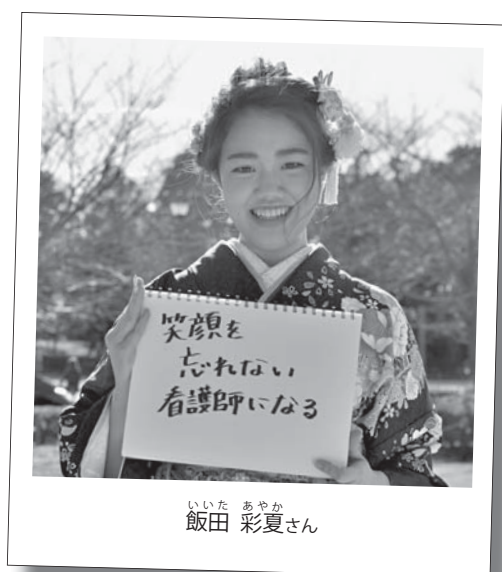 笑顔を
忘れない
看護師になる
いいた あやか
飯田 彩夏さん